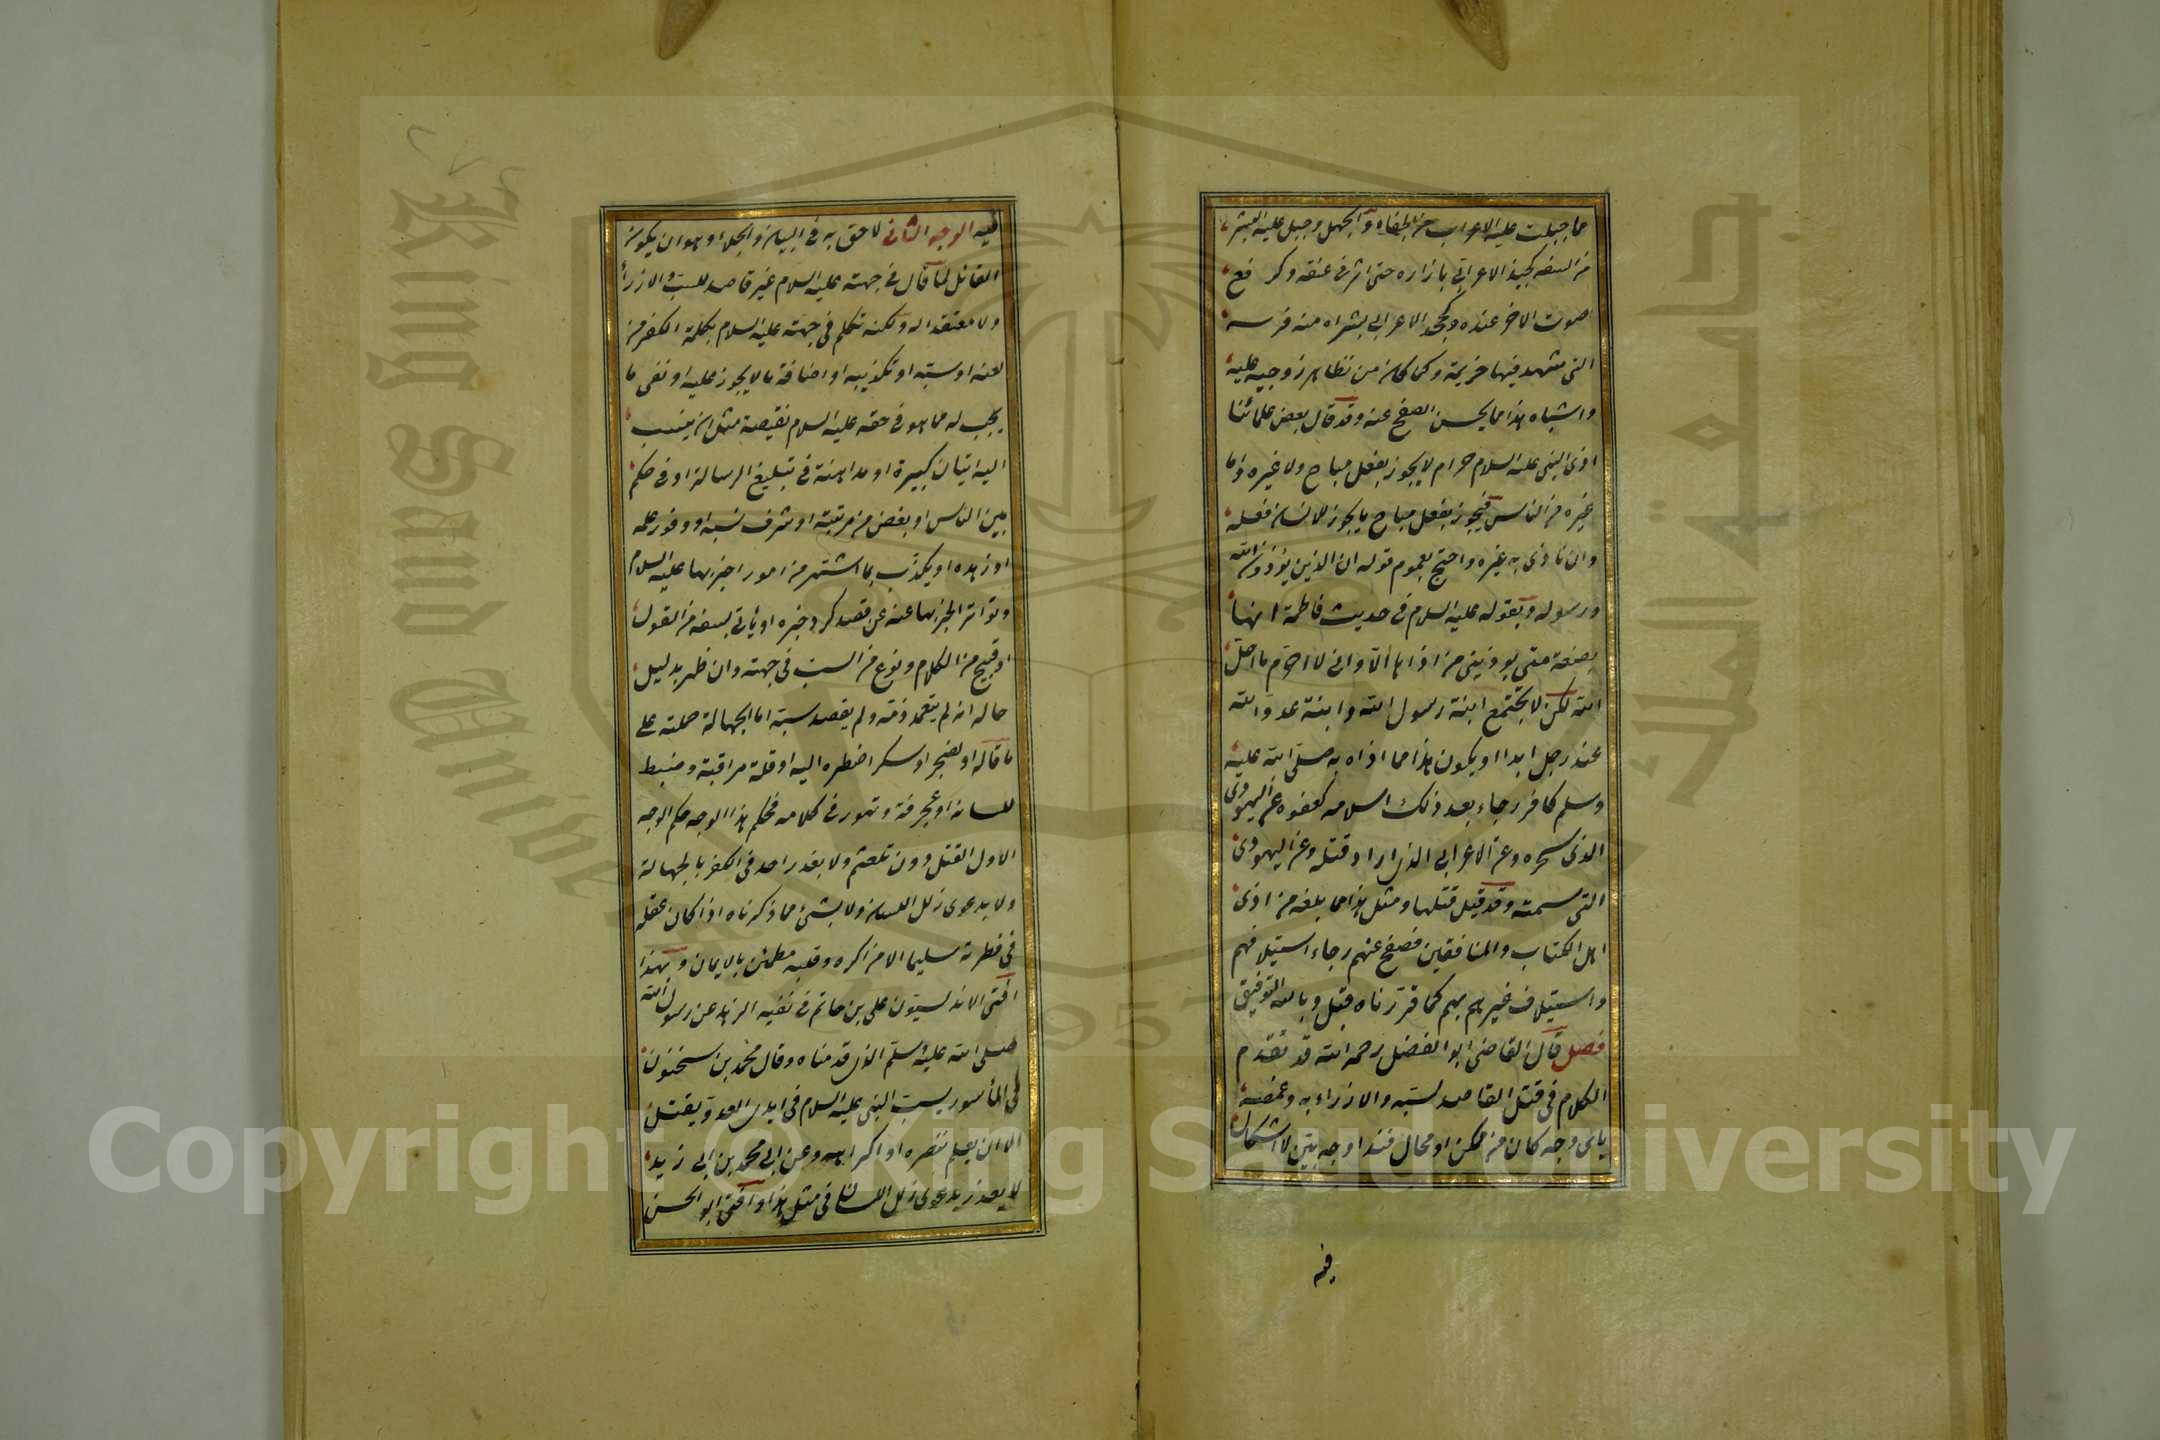 مما جبلت عليه الاعراب من الجفاء والجهل وجبل عليه البشر
من السفه كجبذ الاعرابي بازاره حتى اثر في عنقه وكرفع
صوت الاخر عنده وكجحد الاعرابي بشراه منه فرسه
التي شهد فيها خزيمة وكما كان من تظاهر زوجيه عليه
واشباه هذا مما يحسن الصفح عنه وقد قال بعض علمائنا
اذى النبي عليه السلام حرام لا يجوز بفعل مباح ولا غيره واما
غيره من الناس فيجوز بفعل مباح ما يجوز للانسان فعله
وان تاذى به غيره واحتج بعموم قوله ان الذين يؤذون الله
ورسوله وبقوله عليه السلام في حديث فاطمة انها
بضعة مني يوذيني من اذاها ألا واني لا احرم ما احل
الله لكن لا تجتمع ابنة رسول الله وابنة عدو الله
عند رجل ابدا او يكون هذا مما اذاه به صلى الله عليه
وسلم كافر رجاء بعد ذلك اسلامه كعفوه عن اليهودي
الذي سحره وعن الاعرابي الذي اراد قتله وعن اليهودي
التي سمته وقد قيل قتلها ومثل هذا مما بلغه من اذى
اهل الكتاب والمنافقين فصفح عنهم رجاء استيلافهم
واستيلاف غيرهم بهم كما قررناه قبل وبالله التوفيق
فصل قال القاضي ابو الفضل رحمه الله قد تقدم
الكلام في قتل القاصد لسبه والازراء به وغمصه
باي وجه كان من ممكن او محال فهذا وجه بين لا اشكال
فيه
فيه الوجه الثاني لاحق به في البيان والجلاء وهو ان يكون
القائل لما قال في جهته عليه السلام غير قاصد للسب والازراء
ولا معتقد له ولكنه تكلم في جهته عليه السلام بكلمة الكفر من
لعنه او سبه او تكذيبه او اضافة ما لا يجوز عليه او نفي ما
يجب له مما هو في حقه عليه السلام نقيصة مثل ان ينسب
اليه اتيان كبيرة او مداهنة في تبليغ الرسالة او في حكم
بين الناس او يغض من مرتبته او شرف نسبه او وفور علمه
او زهده او يكذب بما اشتهر من امور اخبر بها عليه السلام
وتواتر الخبر بها عنه عن قصد لرد خبره او ياتي بسفه من القول
او قبيح من الكلام ونوع من السب في جهته وان ظهر بدليل
حاله انه لم يتعمد ذمه ولم يقصد سبه اما لجهالة حملته على
ما قاله او لضجر او سكر اضطره اليه او قلة مراقبة وضبط
للسانه او عجرفة وتهور في كلامه فحكم هذا الوجه حكم الوجه
الاول القتل دون تلعثم ولا يعذر احد في الكفر بالجهالة
ولا بدعوى زلل اللسان ولا بشئ مما ذكرناه اذا كان عقله
في فطرته سليما الا من اكره وقلبه مطمئن بالايمان وبهذا
افتى الاندلسيون على بن حاتم في نفيه الزهد عن رسول الله
صلى الله عليه وسلم الذي قدمناه وقال محمد بن سحنون
في المأسور يسب النبي عليه السلام في ايدي العدو يقتل
الا ان يعلم تنصره او اكراهه وعن ابي محمد بن ابي زيد
لا يعذر بدعوى زلل اللسان في مثل هذا وافتى ابو الحسن
King Saud University
جامعة الملك سعود
1957
Copyright © King Saud University